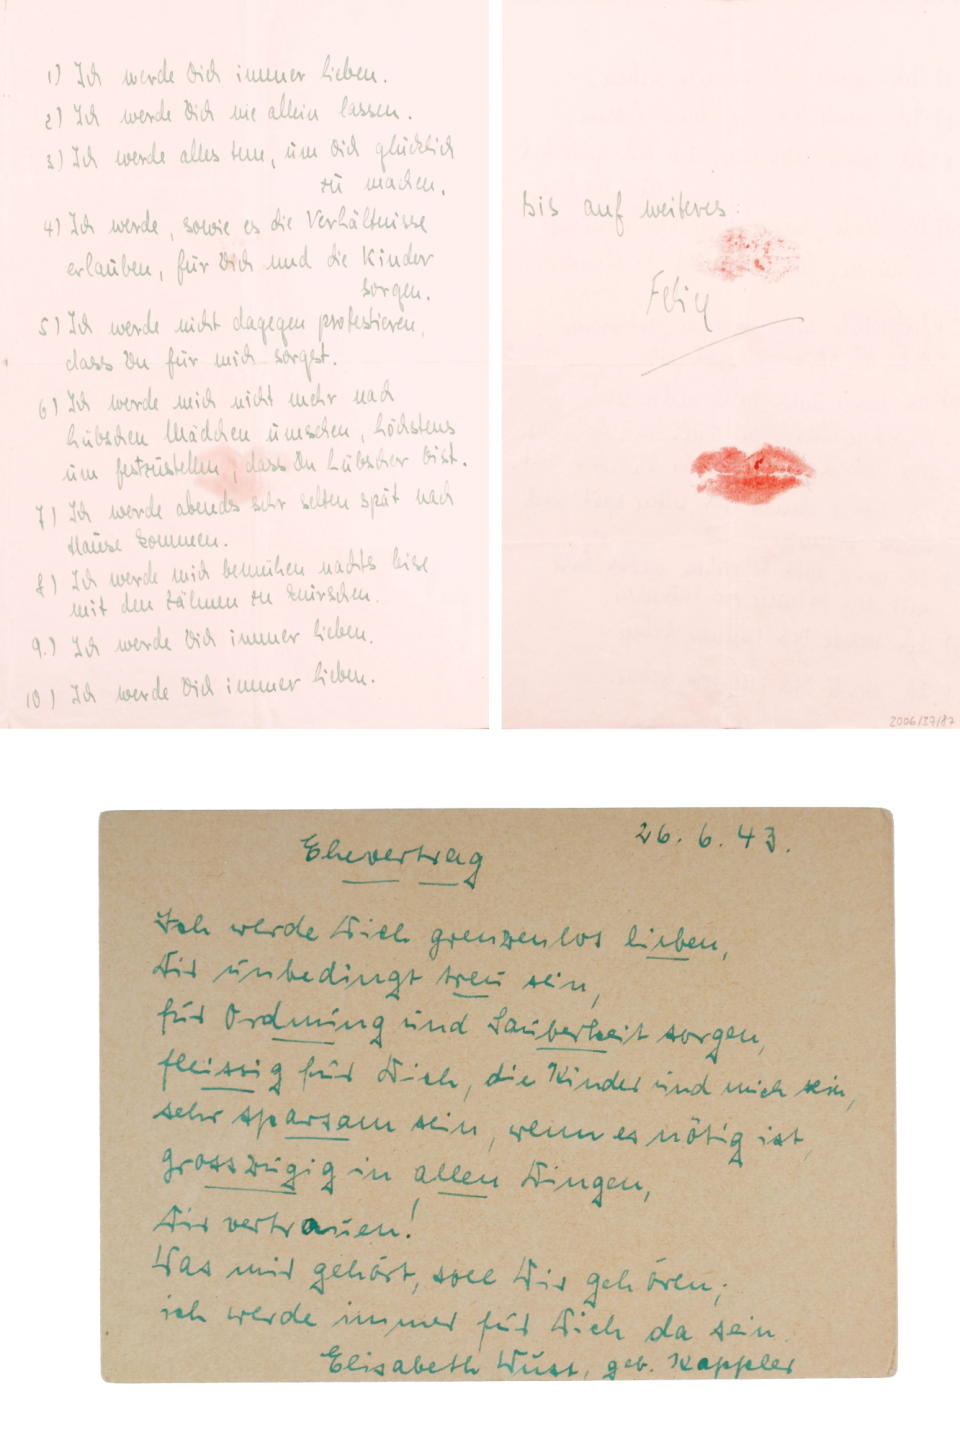 1) Ich werde Dich immer lieben.
2) Ich werde Dich nie allein lassen.
3) Ich werde alles tun, um Dich glücklich
zu machen.
4) Ich werde, sowie es die Verhältnisse
erlauben, für Dich und die Kinder
sorgen.
5) Ich werde nicht dagegen protestieren,
dass Du für mich sorgst.
6) Ich werde mich nicht mehr nach
hübschen Mädchen umsehen, höchstens
um festzustellen, dass Du hübscher bist.
7) Ich werde abends sehr selten spät nach
Hause kommen.
8) Ich werde mich bemühen nachts leise
mit den Zähnen zu knirschen.
9.) Ich werde Dich immer lieben.
10) Ich werde Dich immer lieben.
bis auf weiteres:
Felice
2006/37/87
Ehevertrag
26. 6. 43.
Ich werde Dich grenzenlos lieben,
Dir unbedingt treu sein,
für Ordnung und Sauberkeit sorgen,
fleissig für Dich, die Kinder und mich sein,
sehr sparsam sein, wenn es nötig ist,
grosszügig in allen Dingen,
Dir vertrauen!
Was mir gehört, soll Dir gehören;
ich werde immer für Dich da sein.
Elisabeth Wust, geb. Kappler